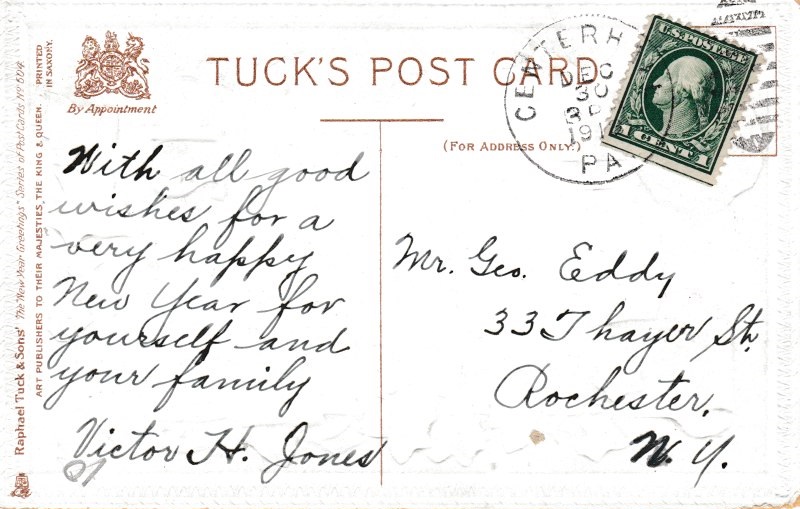 TUCK'S POST CARD
By Appointment
(FOR ADDRESS ONLY.)
Raphael Tuck & Sons' The "New Year Greetings" Series of Post Cards No 604
ART PUBLISHERS TO THEIR MAJESTIES, THE KING & QUEEN.
PRINTED
IN SAXONY.
DEC
30
191
PA
U.S. POSTAGE
1 CENT 1
With all good
wishes for a
very happy
New Year for
yourself and
your family
Victor H. Jones
Mr. Geo. Eddy
33 Thayer St.
Rochester,
N. Y.